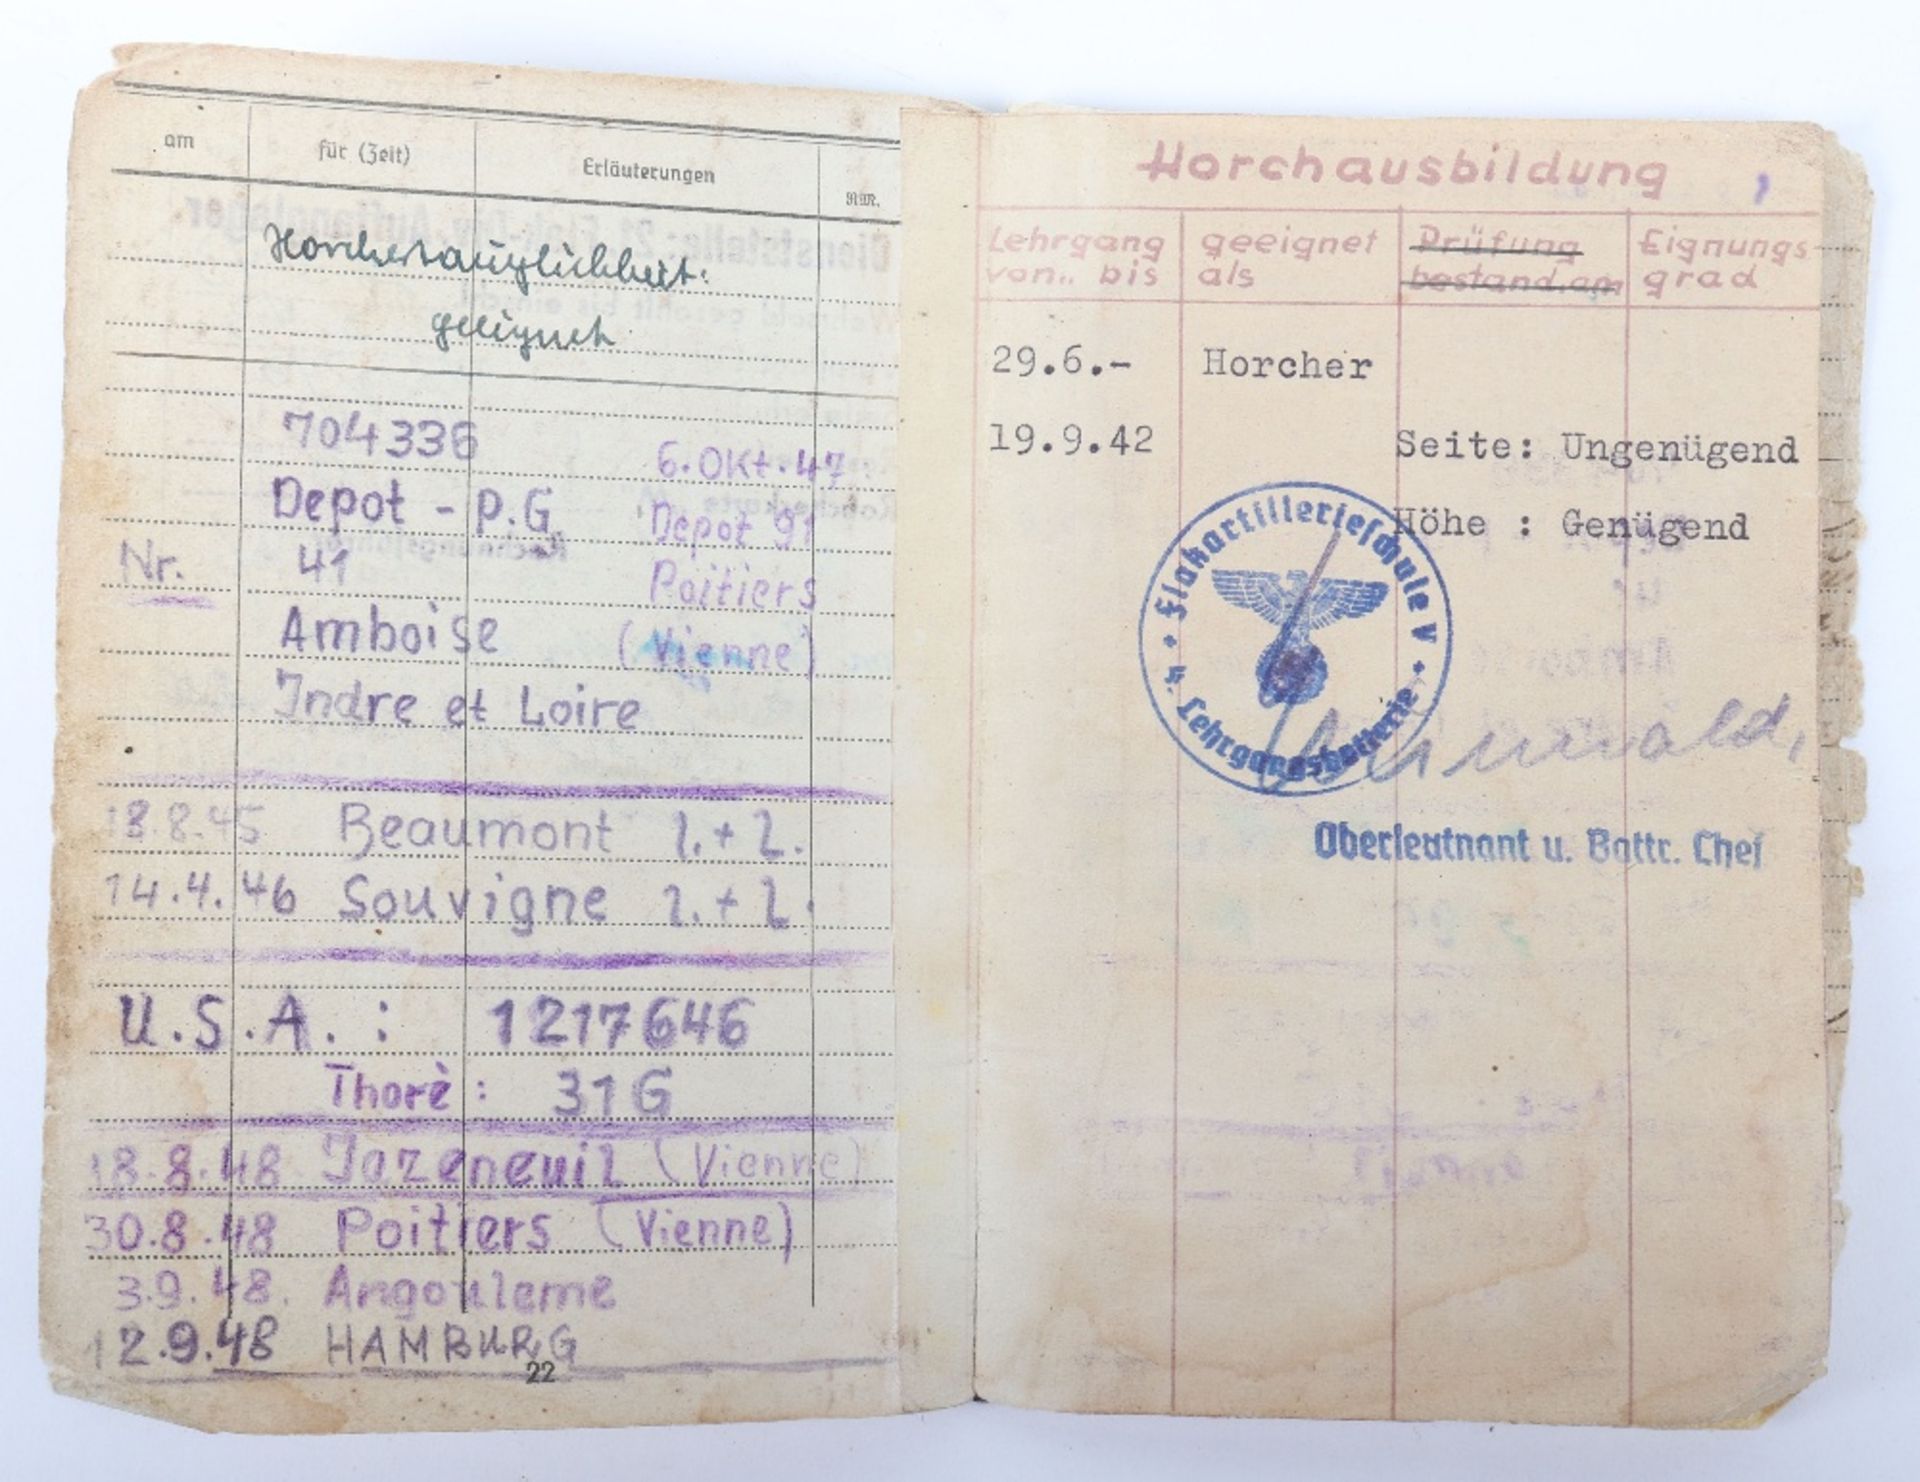 am für (Zeit) Erläuterungen RM.
Horchertauglichkeit:
geeignet
704336
6.Okt.47
Depot - P.G.
Depot 91
Nr. 41
Poitiers
Amboise
(Vienne)
Indre et Loire
18.8.45 Beaumont 1.+2.
14.4.46 Souvigne 1.+2.
U.S.A.: 1217646
Thorè: 31G
18.8.48 Jazeneuil (Vienne)
30.8.48 Poitiers (Vienne)
3.9.48. Angouleme
12.9.48 HAMBURG
22
Horchausbildung
Lehrgang von.. bis
geeignet als
Prüfung bestand.am
Eignungs-grad
29.6.- Horcher
19.9.42 Seite: Ungenügend
Höhe : Genügend
Flakartillerieschule V
Lehrgangsbatterie
Oberleutnant u. Battr. Chef